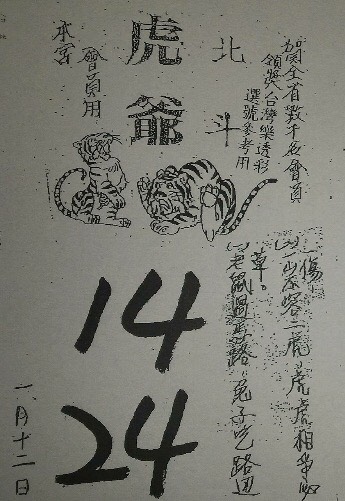 賀全省數千名會員
台灣樂透彩
選號參考用
北斗
虎爺
會員用
本宮
一山不容二虎,虎虎相爭必
一傷
老鼠過馬路,兔子吃路邊
草。
14
24
月十二日